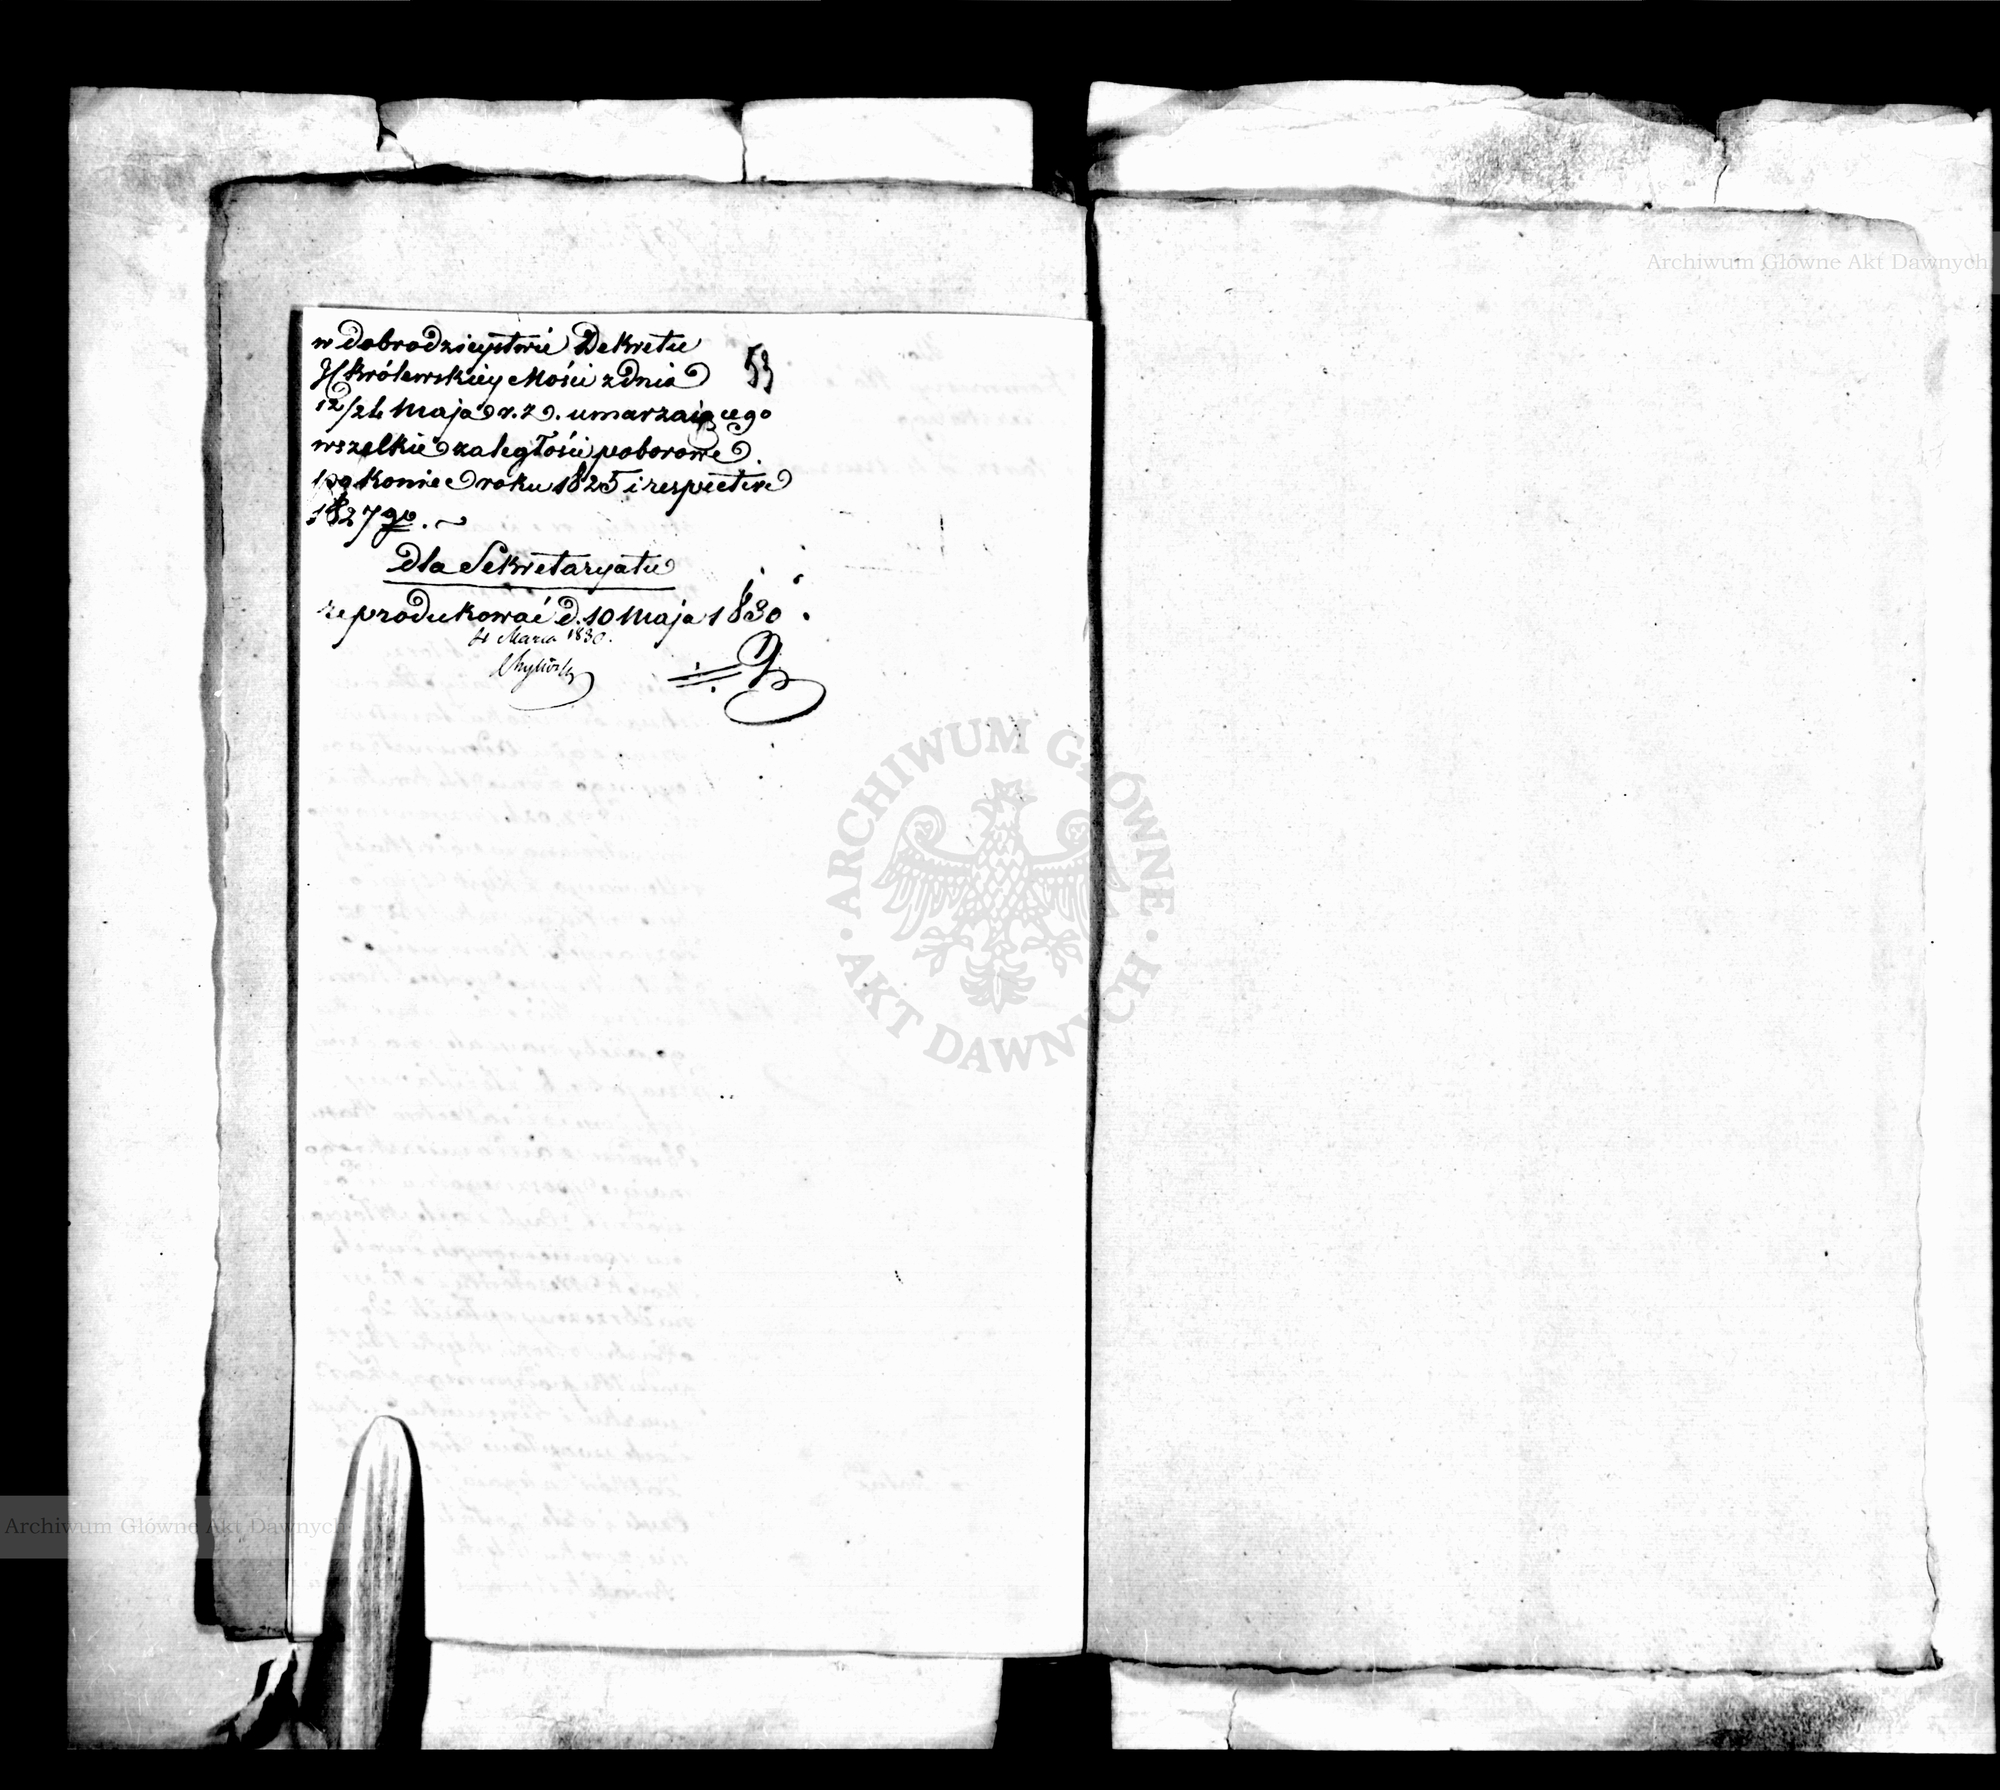 w dobrodzieystwie Dekretu
JKrólewskiey Mości z dnia
53
12/24 Maja r. z. umarzaiącego
wszelkie zaległości poborowe
po koniec roku 1825 i respective
1827 go.
dla Sekretaryatu
reprodukować d. 10 Maja 1830
4 Marca 1830.
Archiwum Główne Akt Dawnych
ARCHIWUM GŁÓWNE · AKT DAWNYCH ·
Archiwum Główne Akt Dawnych